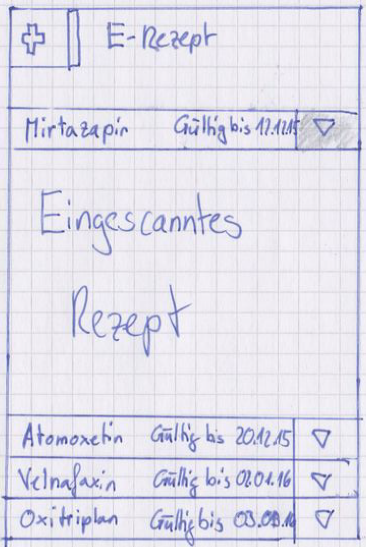 E-Rezept
Mirtazapin Gültig bis 12.12.15
Eingescanntes
Rezept
Atomoxetin Gültig bis 20.12.15
Velnafaxin Gültig bis 02.01.16
Oxitriptan Gültig bis